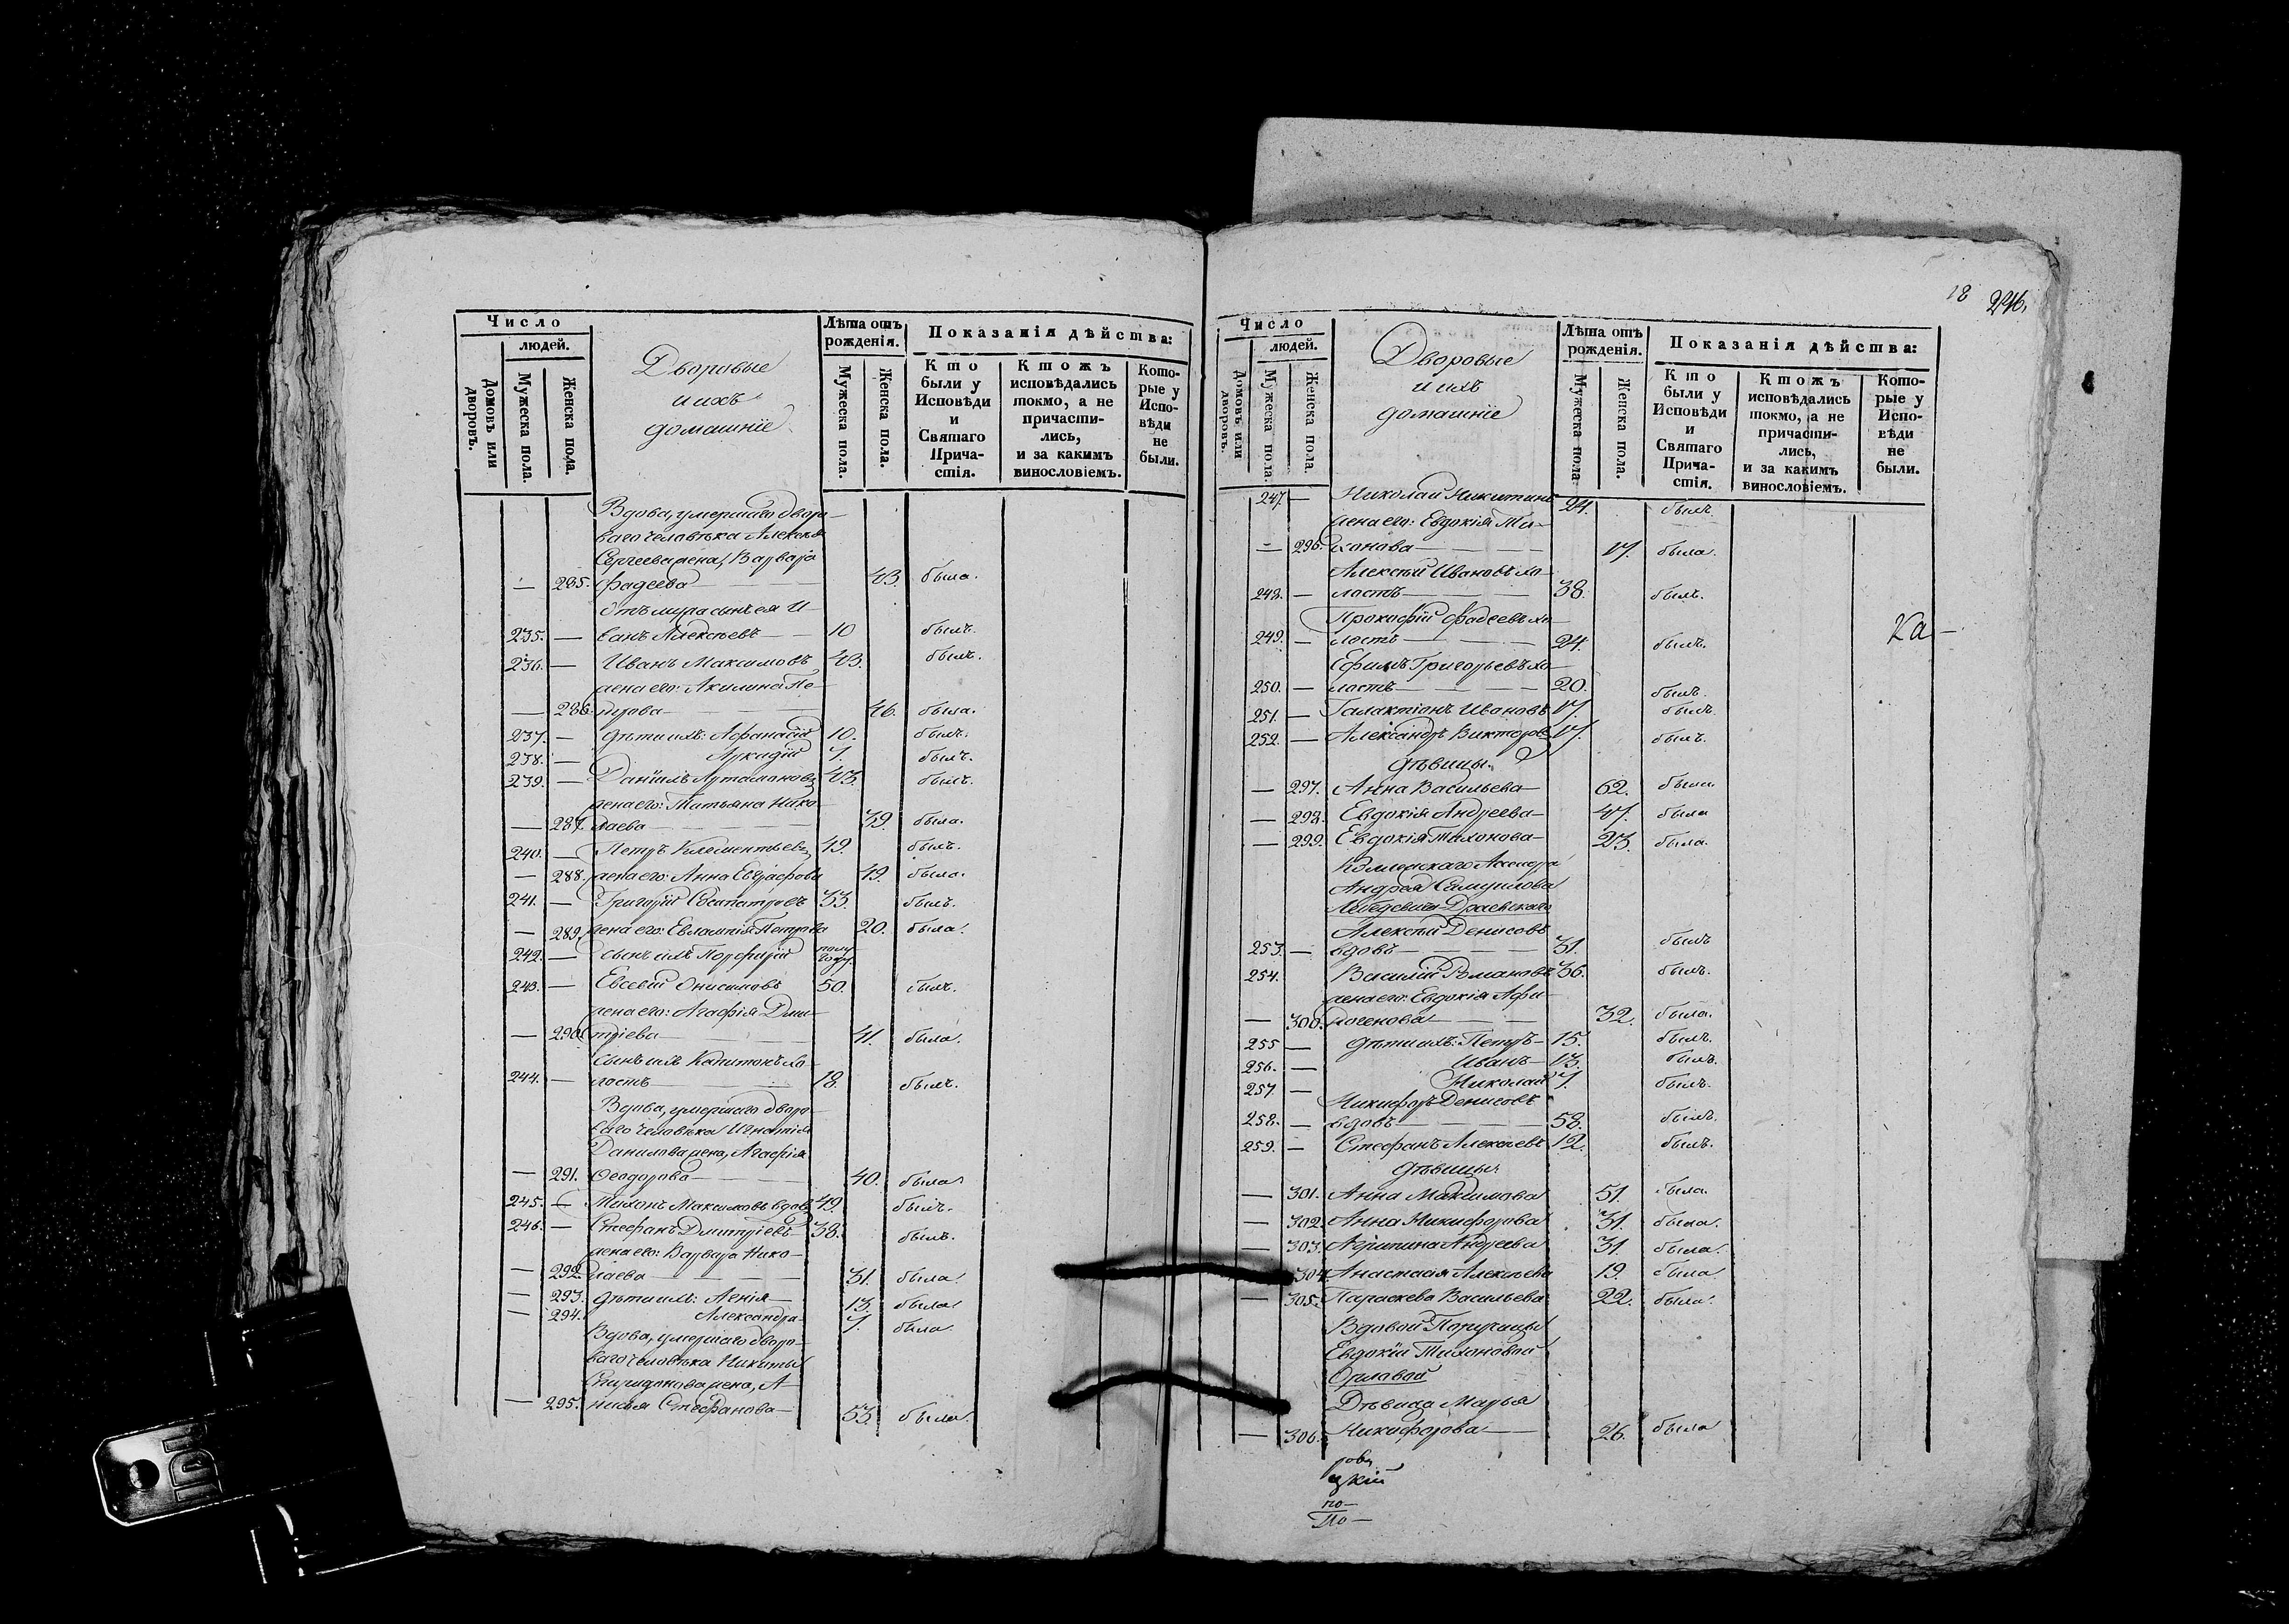 Число
людей.
Домовъ или дворовъ.
Мужеска пола.
Женска пола.
Дворовые
и ихъ
домашніе
Лѣта отъ
рожденія.
Мужеска пола.
Женска пола.
Показанія дѣйства:
Кто
были у
Исповѣди
и
Святаго
Прича-
стія.
Ктожъ
исповѣдались
токмо, а не
причасти-
лись,
и за какимъ
винословіемъ.
Кото-
рые у
Испо-
вѣди
не
были.
Вдова, умершаго дворо-
ваго человѣка Алексѣя
Сергеева жена, Варвара
— 285. Фадеева 43 была.
Отъ мужа сынъ ея И-
235. — ванъ Алексѣевъ 10 былъ.
236. — Иванъ Максимовъ 43. былъ.
жена его: Акилина Пе-
— 286. трова 46. была.
237. — Дѣти ихъ: Афанасій 10. былъ.
238. — Аркадій 7. былъ.
239. — Даніилъ Артамоновъ 43. былъ.
жена его: Татьяна Нико-
— 287. лаева 39. была.
240. — Петръ Климентьевъ 49. былъ.
— 288. жена его: Анна Евграфова 49. была.
241. — Григорій 33. былъ.
— 289. жена его: Евлампія Петрова 20. была.
242. — Сынъ ихъ Порфирій полу году.
243. — Евсевій Онисимовъ 50. былъ.
жена его: Агафія Дми-
— 290. тріева 41. была.
Сынъ ихъ Капитонъ хо-
244. — лостъ 18. былъ.
Вдова, умершаго дворо-
ваго человѣка Игнатія
Данилова жена, Агафія
— 291. Ѳеодорова 40. была
245. — Тихонъ Максимовъ вдовъ 49. былъ.
246. — Стефанъ Дмитріевъ 38. былъ.
жена его: Варвара Нико-
— 292. лаева 31. была.
— 293. Дѣти ихъ: 13. была
— 294. Александра 7. была
Вдова, умершаго дворо-
ваго человѣка Никиты
Спиридонова жена, А-
— 295. нисья Стефанова 53. была.
18 246.
Число
людей.
Домовъ или дворовъ.
Мужеска пола.
Женска пола.
Дворовые
и ихъ
домашніе
Лѣта отъ
рожденія.
Мужеска пола.
Женска пола.
Показанія дѣйства:
Кто
были у
Исповѣди
и
Святаго
Прича-
стія.
Ктожъ
исповѣдались
токмо, а не
причасти-
лись,
и за какимъ
винословіемъ.
Кото-
рые у
Испо-
вѣди
не
были.
247. — Николай Никитинъ 24. былъ
жена его: Евдокія Ти-
— 296. хонова 17. была.
Алексѣй Ивановъ хо-
248. — лостъ 38. былъ.
Прокофій Фадеевъ хо-
249. — лостъ 24. былъ.
Ка-
Ефимъ Григорьевъ хо-
250. — лостъ 20. былъ.
251. — Галактіонъ Ивановъ 17. былъ.
252. — Александръ Викторовъ 17. былъ.
Дѣвицы.
— 297. Анна Васильева 62. была
— 298. Евдокія Андреева 47. была
— 299. Евдокія Тихонова 23. была.
Андрея Самуилова
Алексѣй Денисовъ
253. — вдовъ 31. былъ
254. Василій Романовъ 36. былъ.
жена его: Евдокія Афи-
— 300. ногенова 32. была.
255 — Дѣти ихъ: Петръ 15. былъ.
256. — Иванъ 13. былъ.
257. — Николай 7. былъ.
Никифоръ Денисовъ
258. — вдовъ 58. былъ.
259. — Стефанъ Алексѣевъ 12. былъ.
Дѣвицы:
— 301. Анна Максимова 51. была.
— 302. Анна Никифорова 31. была.
— 303. Агрипина Андреева 31. была.
304 Анастасія Алексѣева 19. была.
— 305. Параскева Васильева 22. была.
Вдовой Поручицы
Евдокіи Тихоновой
Орловой
Дѣвица Марья
— 306. Никифорова 26. была
ровъ
цкій
по-
По-